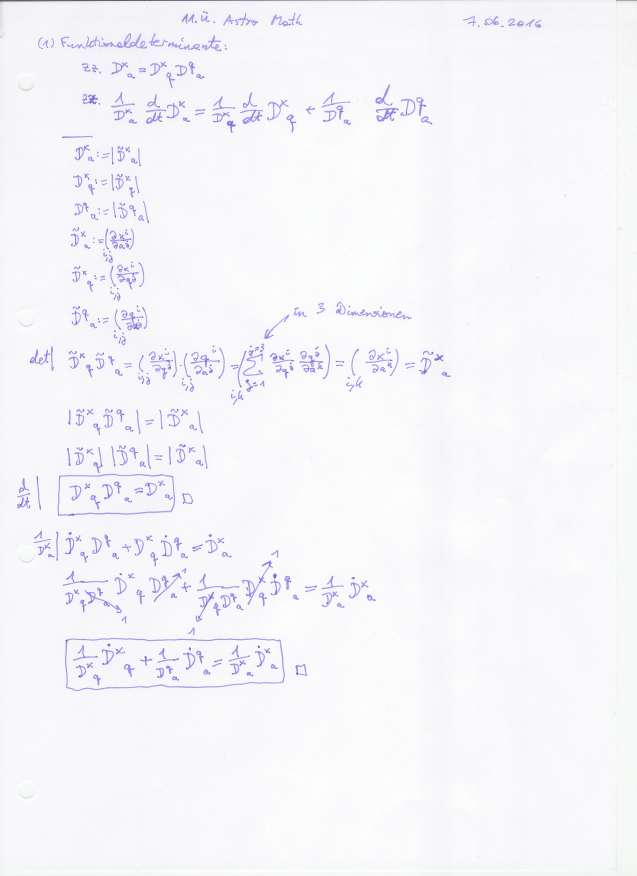 11. Ü. Astro Math 7.06.2016
(1) Funktionaldeterminante:
zz. Dˣₐ = Dˣ_q D^qₐ
zz. 1/Dˣₐ d/dt Dˣₐ = 1/Dˣ_q d/dt Dˣ_q + 1/D^qₐ d/dt D^qₐ
Dˣₐ := |D̃ˣₐ|
Dˣ_q := |D̃ˣ_q|
D^qₐ := |D̃^qₐ|
D̃ˣₐ := (∂xⁱ/∂aʲ)_{i,j}
D̃ˣ_q := (∂xⁱ/∂qʲ)_{i,j}
D̃^qₐ := (∂qⁱ/∂aʲ)_{i,j}
in 3 Dimensionen
det| D̃ˣ_q D̃^qₐ = (∂xⁱ/∂qʲ)_{i,j} · (∂qⁱ/∂aʲ)_{i,j} = (∑_{j=1}^{j=3} ∂xⁱ/∂qʲ ∂qʲ/∂aᵏ)_{i,k} = (∂xⁱ/∂aᵏ)_{i,k} = D̃ˣₐ
|D̃ˣ_q D̃^qₐ| = |D̃ˣₐ|
|D̃ˣ_q| |D̃^qₐ| = |D̃ˣₐ|
d/dt | Dˣ_q D^qₐ = Dˣₐ □
1/Dˣₐ | Ḋˣ_q D^qₐ + Dˣ_q Ḋ^qₐ = Ḋˣₐ
1/(Dˣ_q D^qₐ) Ḋˣ_q D^qₐ + 1/(Dˣ_q D^qₐ) Dˣ_q Ḋ^qₐ = 1/Dˣₐ Ḋˣₐ
1/Dˣ_q Ḋˣ_q + 1/D^qₐ Ḋ^qₐ = 1/Dˣₐ Ḋˣₐ □